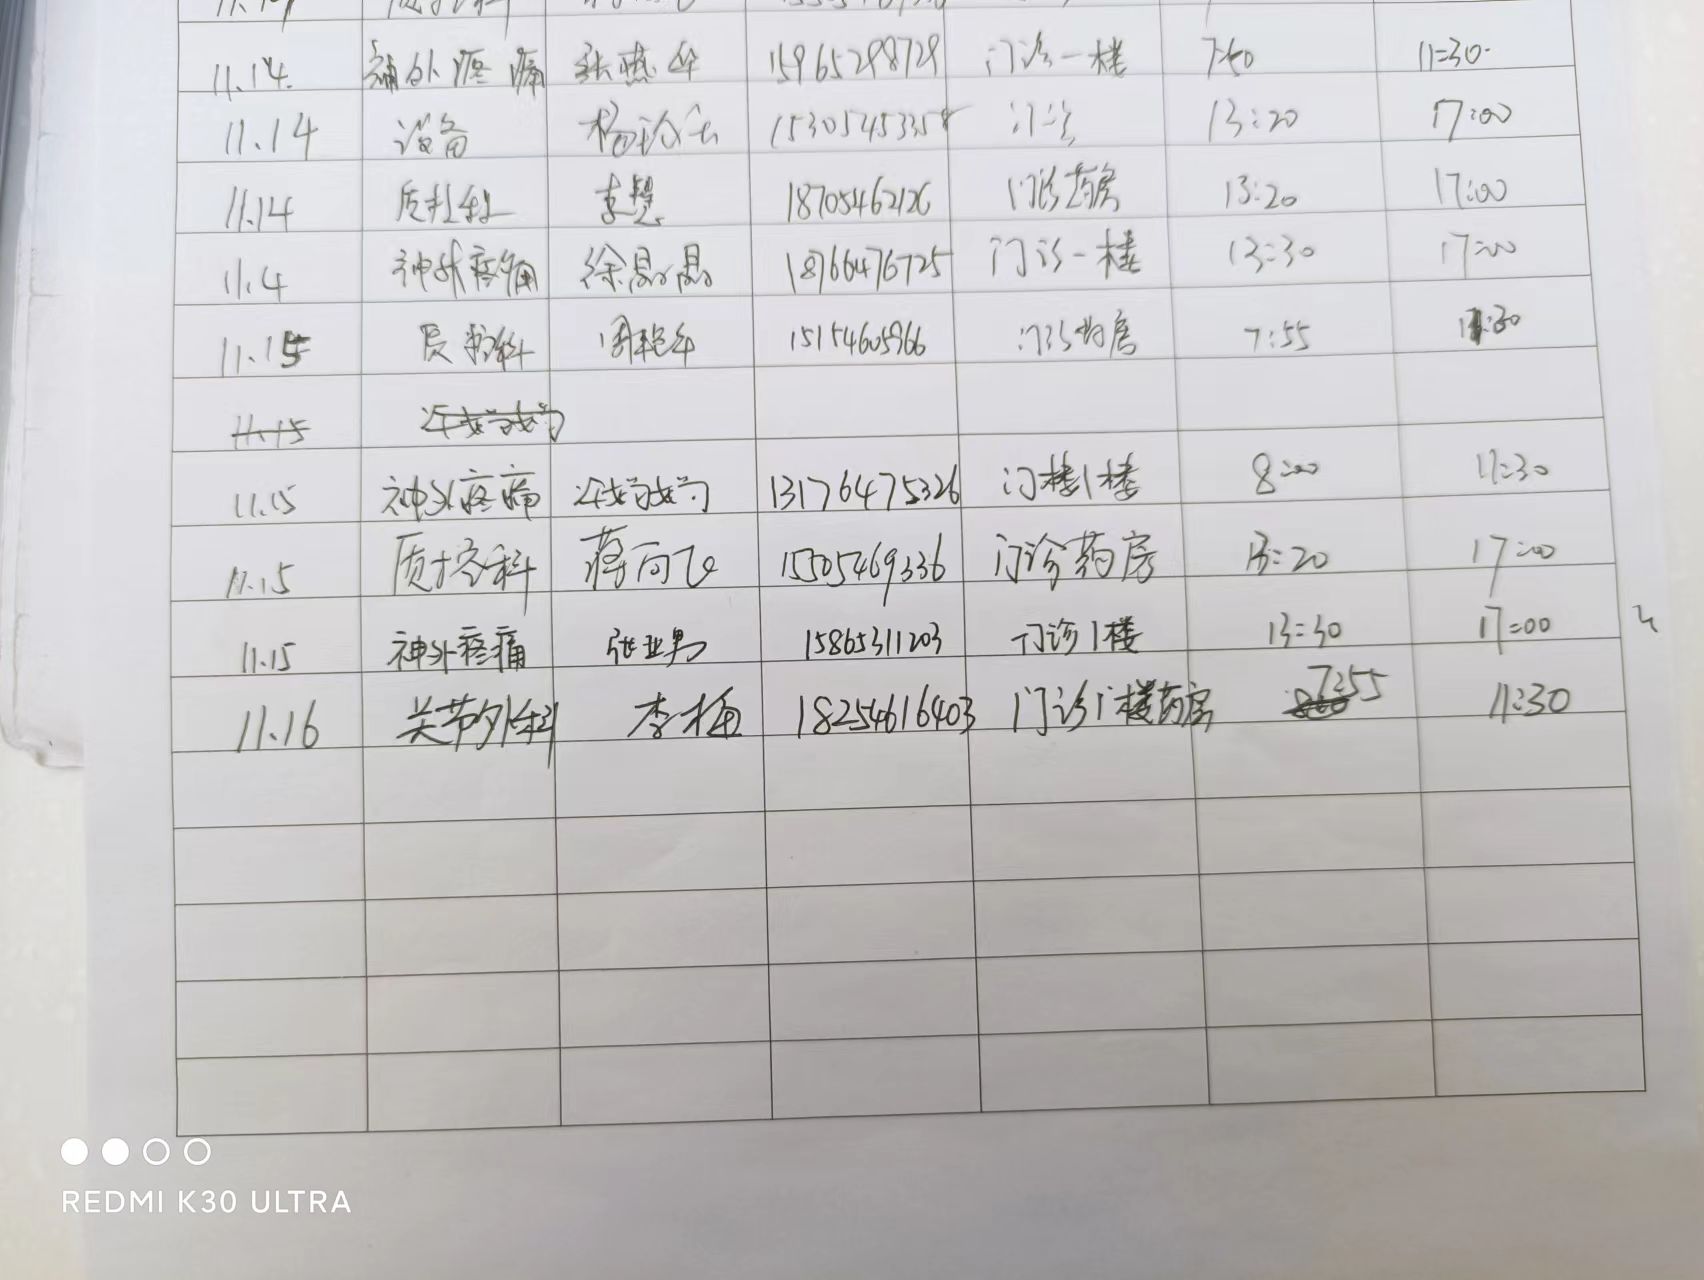 11.14 神外疼痛 15965298729 门诊一楼 7:50 11:30
11.14 设备 15305453358 门诊 13:20 17:00
11.14 质控科 李慧 18705462126 门诊药房 13:20 17:00
11.4 神外疼痛 徐晶晶 18766476725 门诊一楼 13:30 17:00
11.15 质控科 周艳华 15154605966 门诊药房 7:55 11:30
11.15
11.15 神外疼痛 13176475326 门楼1楼 8:00 11:30
11.15 质控科 蒋向飞 15505469336 门诊药房 13:20 17:00
11.15 神外疼痛 张亚男 15865311203 门诊1楼 13:30 17:00
11.16 关节外科 李梅 18254616403 门诊1楼药房 7:55 11:30
REDMI K30 ULTRA